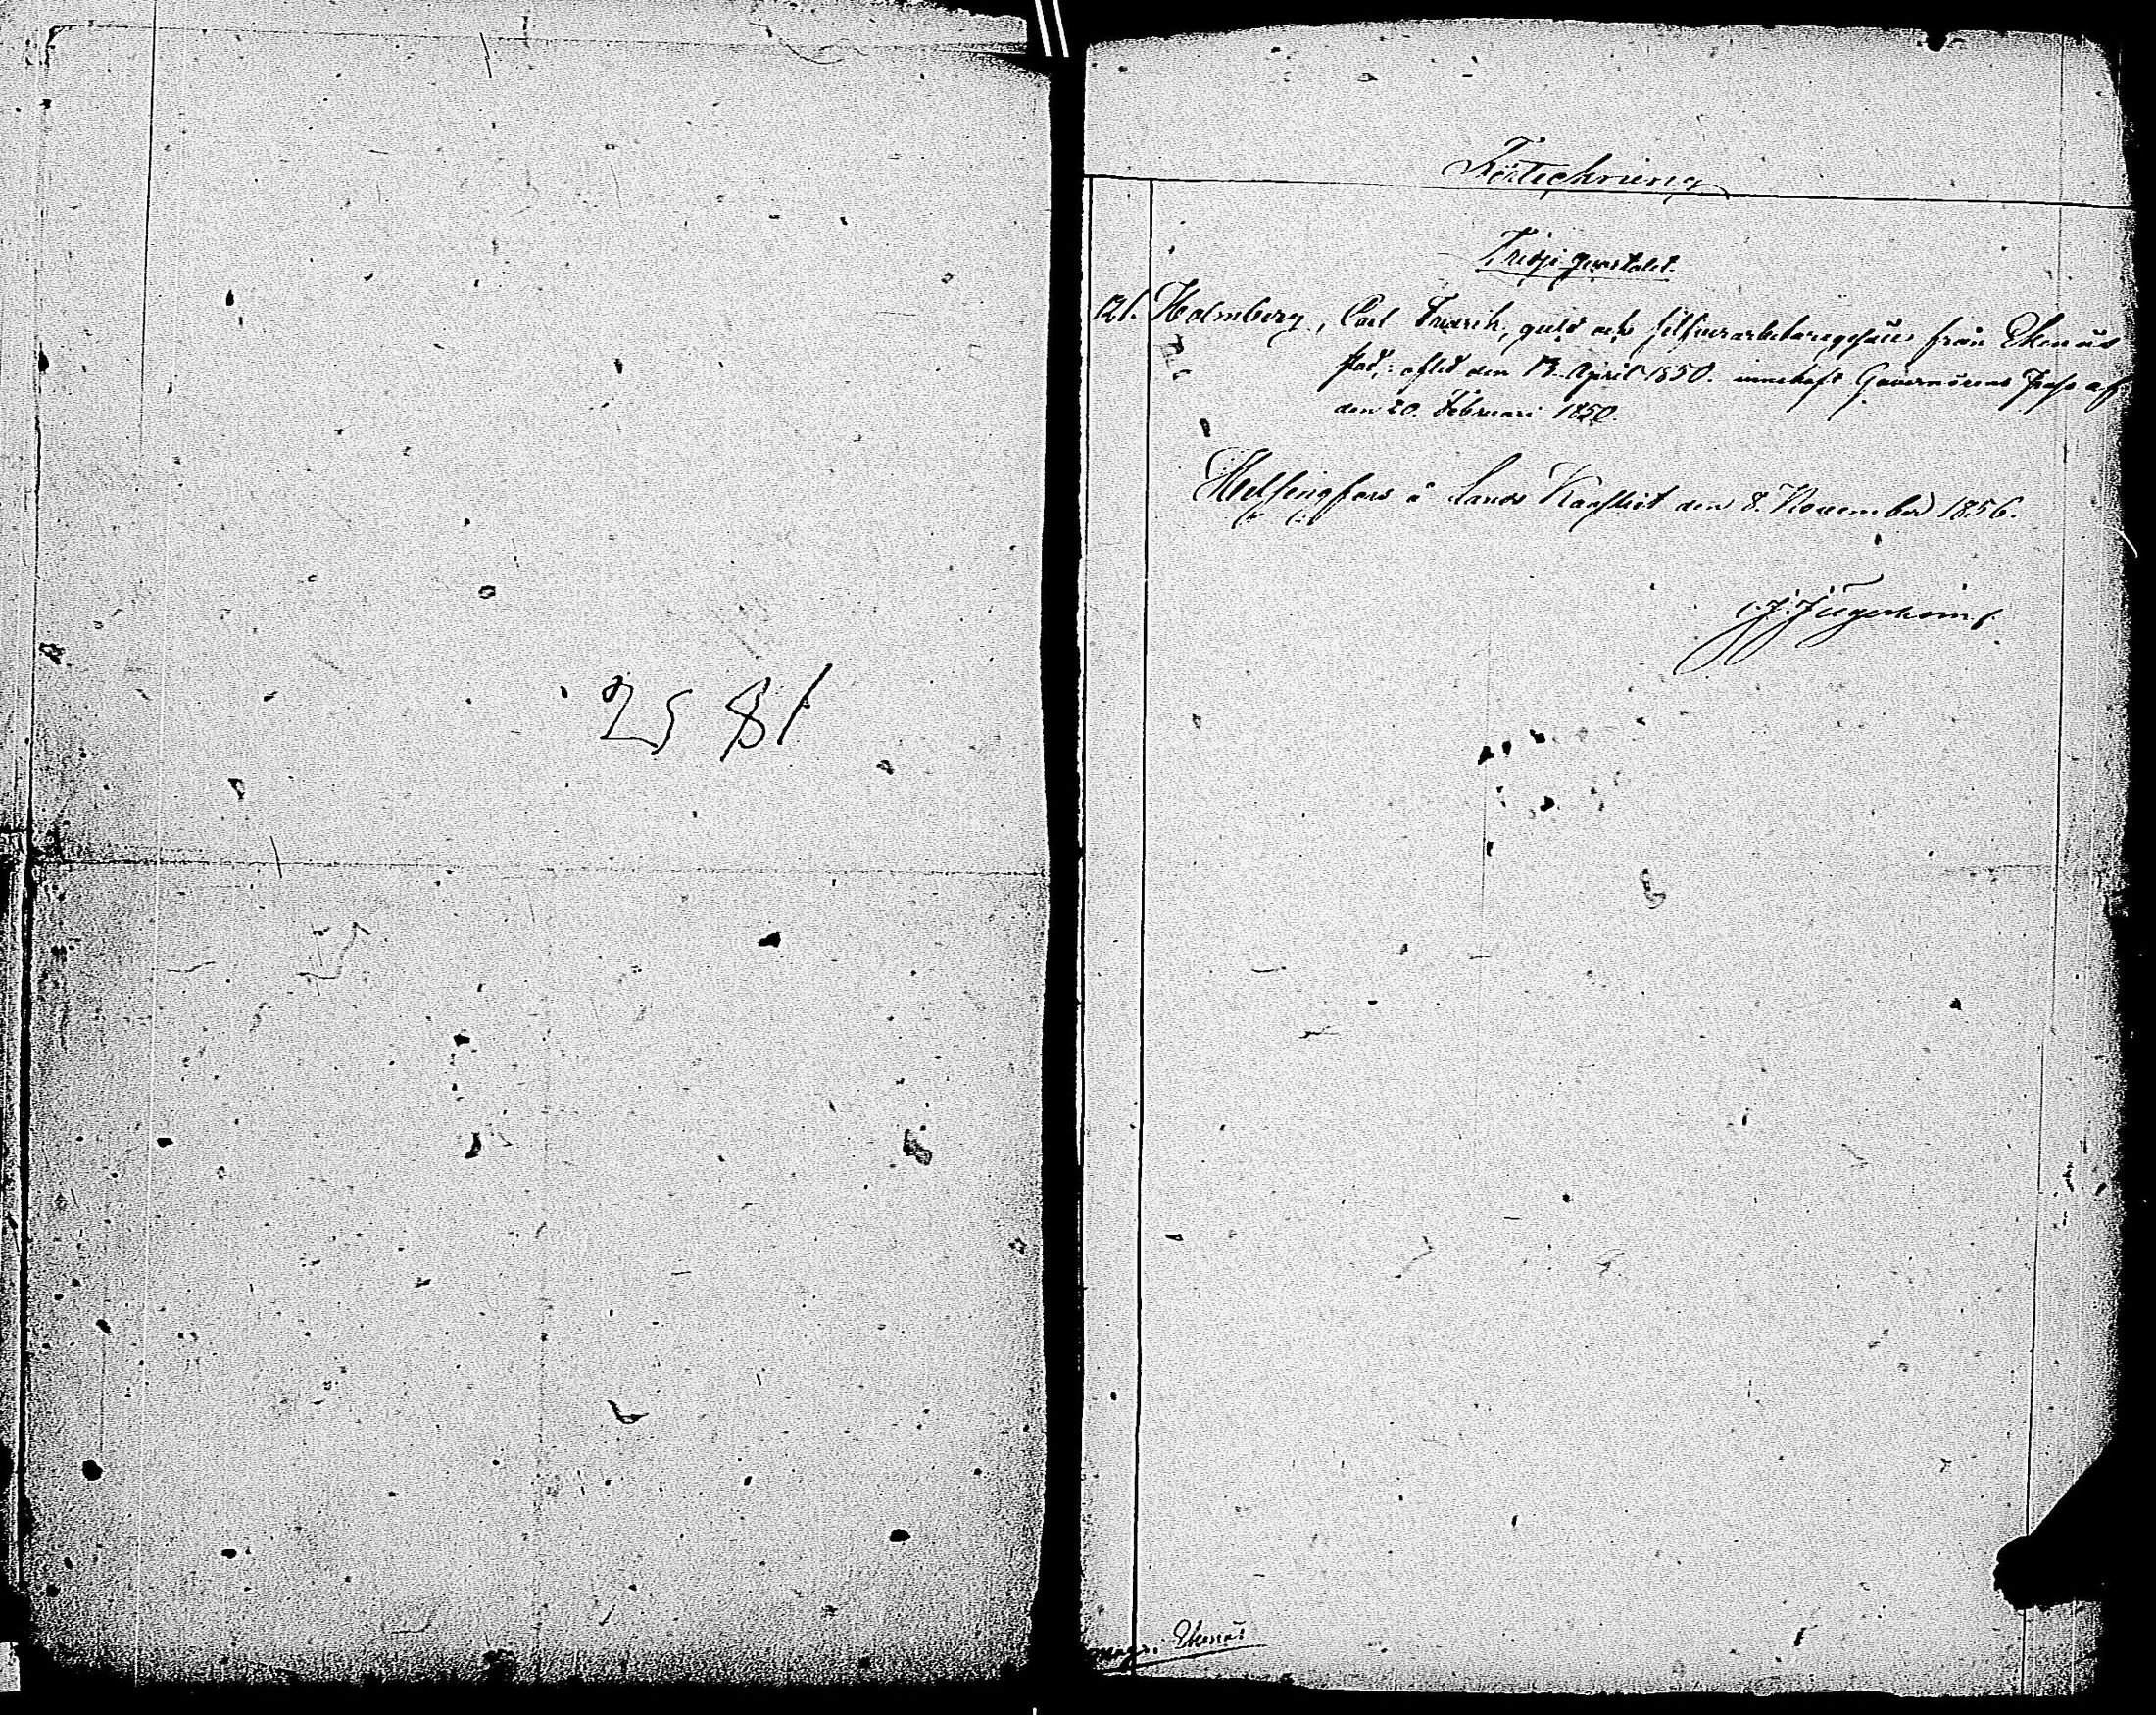 25 81
Förteckning
Tredje quartalet.
121. Holmberg, Carl Fredrik, guld och silfverarbetaregesäll från Ekenäs
stad, afled den 13 April 1850. innehaft Governörens Pass af
den 20. Februari 1850.
Helsingfors å Lands Kansliet den 8. November 1856.
Ekenäs